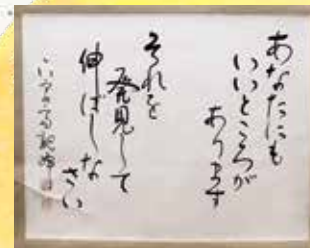 あなたにも
いいところが
あります
それを
発見して
伸ばしな
さい